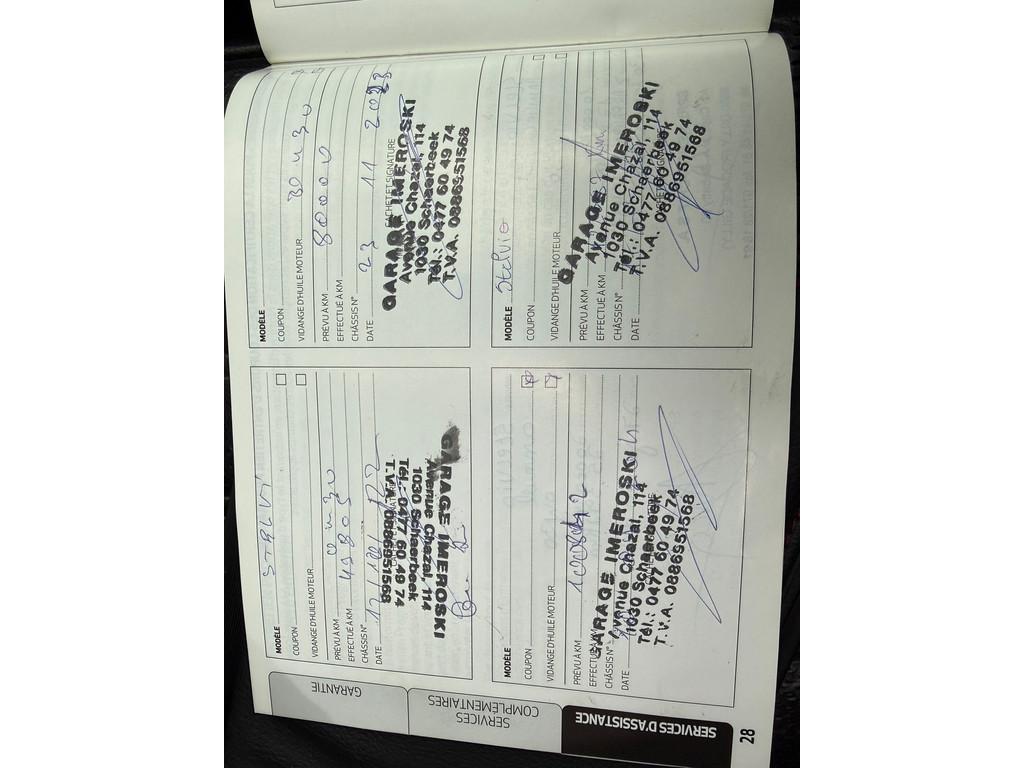 GARANTIE
SERVICES
COMPLÉMENTAIRES
SERVICES D'ASSISTANCE
28
MODÈLE STELVI
COUPON
VIDANGE D'HUILE MOTEUR
PRÉVU À KM
EFFECTUÉ À KM
CHÂSSIS N°
DATE
GARAGE IMEROSKI
Avenue Chazal, 114
1030 Schaerbeek
Tél.: 0477 60 49 74
T.V.A. 0886951568
MODÈLE
COUPON
VIDANGE D'HUILE MOTEUR
PRÉVU À KM 80000
EFFECTUÉ À KM
CHÂSSIS N°
DATE 23 11 2023
CACHET ET SIGNATURE
GARAGE IMEROSKI
Avenue Chazal, 114
1030 Schaerbeek
Tél.: 0477 60 49 74
T.V.A. 0886951568
MODÈLE
COUPON
VIDANGE D'HUILE MOTEUR
PRÉVU À KM
EFFECTUÉ À KM
CHÂSSIS N°
DATE
GARAGE IMEROSKI
Avenue Chazal, 114
1030 Schaerbeek
Tél.: 0477 60 49 74
T.V.A. 0886951568
MODÈLE Stelvio
COUPON
VIDANGE D'HUILE MOTEUR
PRÉVU À KM
EFFECTUÉ À KM
CHÂSSIS N°
DATE
GARAGE IMEROSKI
Avenue Chazal, 114
1030 Schaerbeek
Tél.: 0477 60 49 74
T.V.A. 0886951568